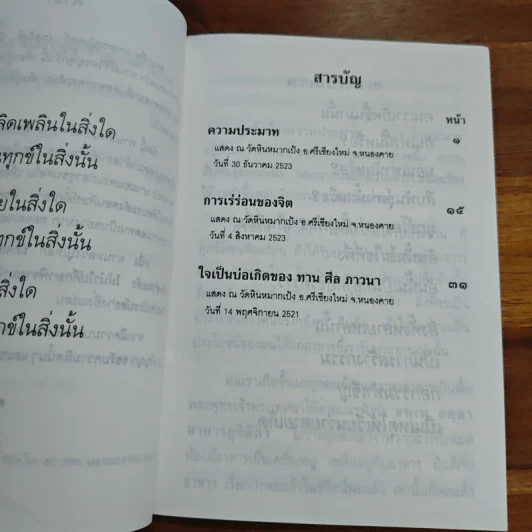 ลิดเพลินในสิ่งใด
ทุกข์ในสิ่งนั้น
ในสิ่งใด
ทุกข์ในสิ่งนั้น
สิ่งใด
ทุกข์ในสิ่งนั้น
สารบัญ
หน้า
ความประมาท ๑
แสดง ณ วัดหินหมากเป้ง อ.ศรีเชียงใหม่ จ.หนองคาย
วันที่ 30 ธันวาคม 2523
การเร่ร่อนของจิต ๑๕
แสดง ณ วัดหินหมากเป้ง อ.ศรีเชียงใหม่ จ.หนองคาย
วันที่ 4 สิงหาคม 2523
ใจเป็นบ่อเกิดของ ทาน ศีล ภาวนา ๓๑
แสดง ณ วัดหินหมากเป้ง อ.ศรีเชียงใหม่ จ.หนองคาย
วันที่ 14 พฤศจิกายน 2521